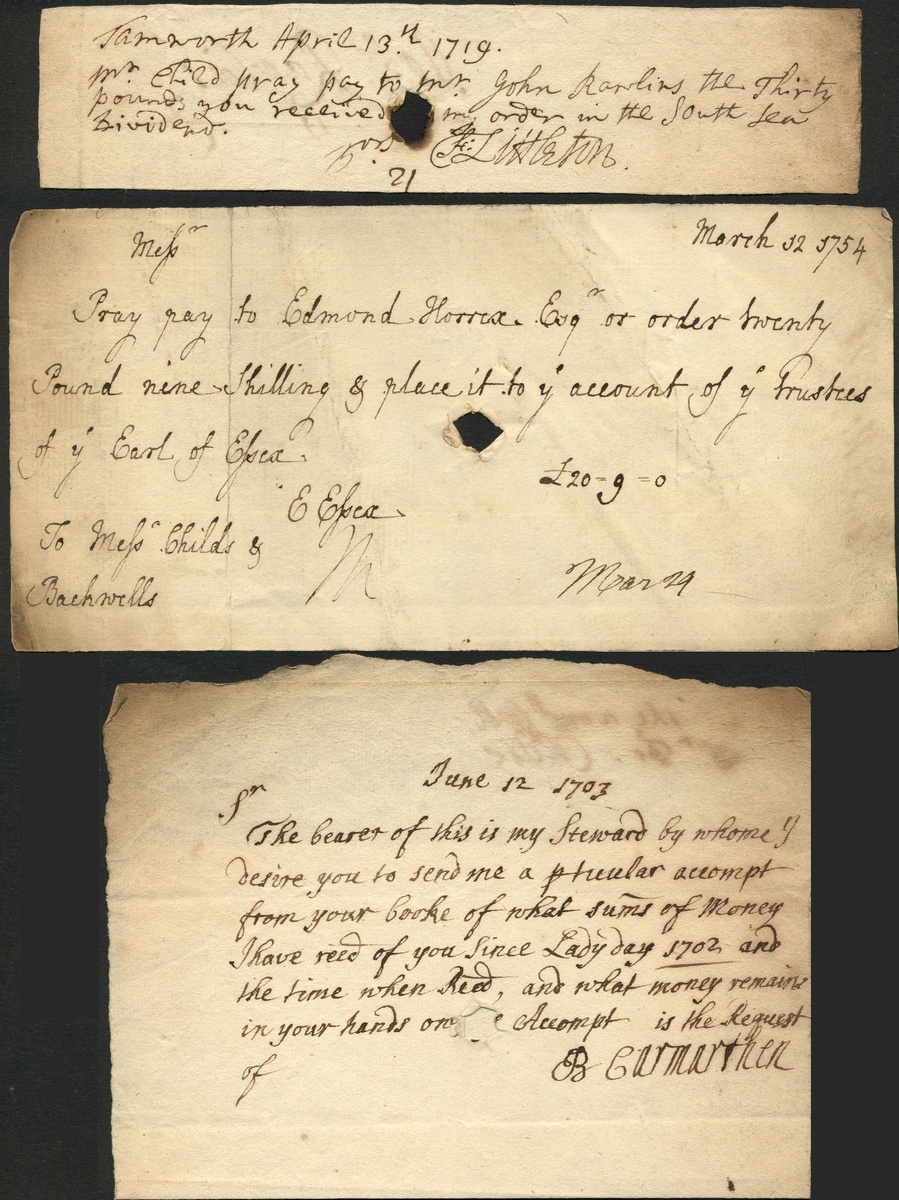 Tamworth April 13.th 1719.
Mr. Child pray pay to Mr. John Rawlins the Thirty
pounds you received my order in the South Sea
Dividend.
yors Fr: Littleton.
21
Messr
March 12 1754
Pray pay to Edmond Horrex Esqr or order twenty
Pound nine Shilling & place it to ye account of ye trustees
of ye Earl of Essex.
£20=9=0
E Essex
To Messr Childs &
Backwells
Mar 29
June 12 1703
Sr
The bearer of this is my Steward by whome I
desire you to send me a pticular accompt
from your booke of what sums of Money
I have recd of you Since Lady day 1702 and
the time when Recd, and what money remains
in your hands on Accompt is the Request
of
B Carmarthen